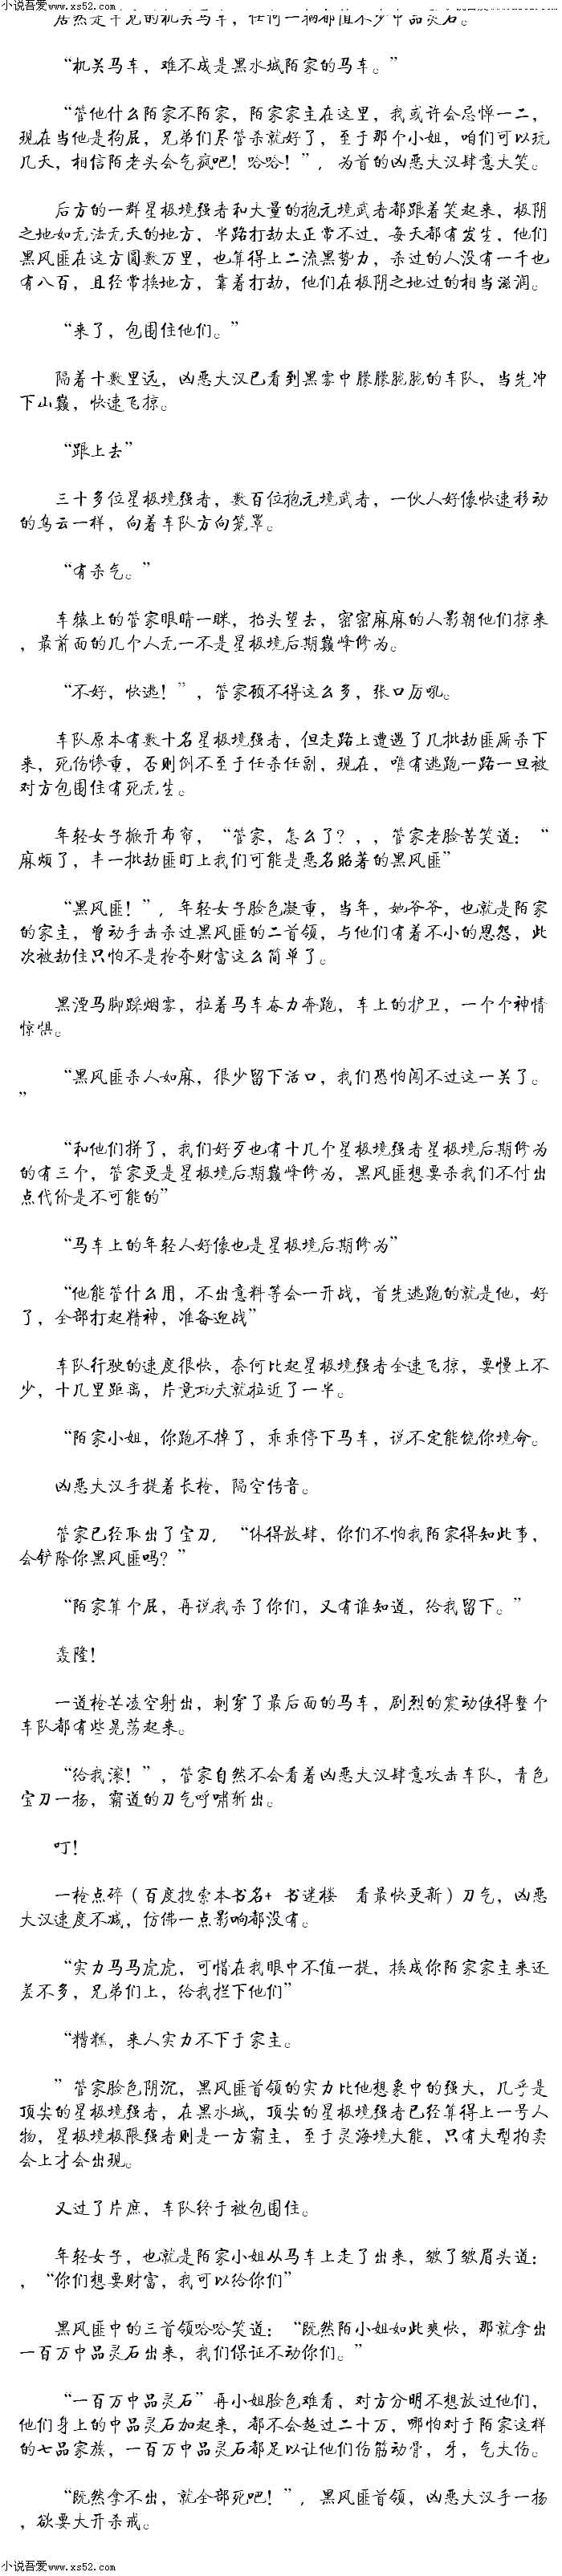 小说吾爱 www.xs52.com
小说吾爱www.xs52.com
居然是罕见的机关马车，任何一辆都值不少中品灵石。
“机关马车，难不成是黑水城陌家的马车。”
“管他什么陌家不陌家，陌家家主在这里，我或许会忌惮一二，
现在当他是狗屁，兄弟们尽管杀就好了，至于那个小姐，咱们可以玩
几天，相信陌老头会气疯吧！哈哈！”，为首的凶恶大汉肆意大笑。
后方的一群星极境强者和大量的抱元境武者都跟着笑起来，极阴
之地如无法无天的地方，半路打劫太正常不过，每天都有发生，他们
黑风匪在这方圆数万里，也算得上二流黑势力，杀过的人没有一千也
有八百，且经常换地方，靠着打劫，他们在极阴之地过的相当滋润。
“来了，包围住他们。”
隔着十数里远，凶恶大汉已看到黑雾中朦朦胧胧的车队，当先冲
下山巅，快速飞掠。
“跟上去”
三十多位星极境强者，数百位抱元境武者，一伙人好像快速移动
的乌云一样，向着车队方向笼罩。
“有杀气。”
车辕上的管家眼睛一眯，抬头望去，密密麻麻的人影朝他们掠来
，最前面的几个人无一不是星极境后期巅峰修为。
“不好，快逃！”，管家顾不得这么多，张口厉吼。
车队原本有数十名星极境强者，但走路上遭遇了几批劫匪厮杀下
来，死伤惨重，否则倒不至于任杀任剐，现在，唯有逃跑一路一旦被
对方包围住有死无生。
年轻女子掀开布帘，“管家，怎么了？，，管家老脸苦笑道：“
麻烦了，丰一批劫匪盯上我们可能是恶名昭著的黑风匪”
“黑风匪！”，年轻女子脸色凝重，当年，她爷爷，也就是陌家
的家主，曾动手击杀过黑风匪的二首领，与他们有着不小的恩怨，此
次被劫住只怕不是抢夺财富这么简单了。
黑湮马脚踩烟雾，拉着马车奋力奔跑，车上的护卫，一个个神情
惊惧。
“黑风匪杀人如麻，很少留下活口，我们恐怕闯不过这一关了。
”
“和他们拼了，我们好歹也有十几个星极境强者星极境后期修为
的有三个，管家更是星极境后期巅峰修为，黑风匪想要杀我们不付出
点代价是不可能的”
“马车上的年轻人好像也是星极境后期修为”
“他能管什么用，不出意料等会一开战，首先逃跑的就是他，好
了，全部打起精神，准备迎战”
车队行驶的速度很快，奈何比起星极境强者全速飞掠，要慢上不
少，十几里距离，片竟功夫就拉近了一半。
“陌家小姐，你跑不掉了，乖乖停下马车，说不定能饶你境命。
凶恶大汉手提着长枪，隔空传音。
管家已经取出了宝刀，“休得放肆，你们不怕我陌家得知此事，
会铲除你黑风匪吗？”
“陌家算个屁，再说我杀了你们，又有谁知道，给我留下。”
轰隆！
一道枪芒凌空射出，刺穿了最后面的马车，剧烈的震动使得整个
车队都有些晃荡起来。
“给我滚！”，管家自然不会看着凶恶大汉肆意攻击车队，青色
宝刀一扬，霸道的刀气呼啸斩出。
叮！
一枪点碎（百度搜索本书名+ 书迷楼 看最快更新）刀气，凶恶
大汉速度不减，仿佛一点影响都没有。
“实力马马虎虎，可惜在我眼中不值一提，换成你陌家家主来还
差不多，兄弟们上，给我拦下他们”
“糟糕，来人实力不下于家主。
”管家脸色阴沉，黑风匪首领的实力比他想象中的强大，几乎是
顶尖的星极境强者，在黑水城，顶尖的星极境强者已经算得上一号人
物，星极境极限强者则是一方霸主，至于灵海境大能，只有大型拍卖
会上才会出现。
又过了片庶，车队终于被包围住。
年轻女子，也就是陌家小姐从马车上走了出来，皱了皱眉头道：
，“你们想要财富，我可以给你们”
黑风匪中的三首领哈哈笑道：“既然陌小姐如此爽快，那就拿出
一百万中品灵石出来，我们保证不动你们。”
“一百万中品灵石”再小姐脸色难看，对方分明不想放过他们，
他们身上的中品灵石加起来，都不会超过二十万，哪怕对于陌家这样
的七品家族，一百万中品灵石都足以让他们伤筋动骨，牙，气大伤。
“既然拿不出，就全部死吧！”，黑风匪首领，凶恶大汉手一扬
，欲要大开杀戒。
小说吾爱 www.xs52.com